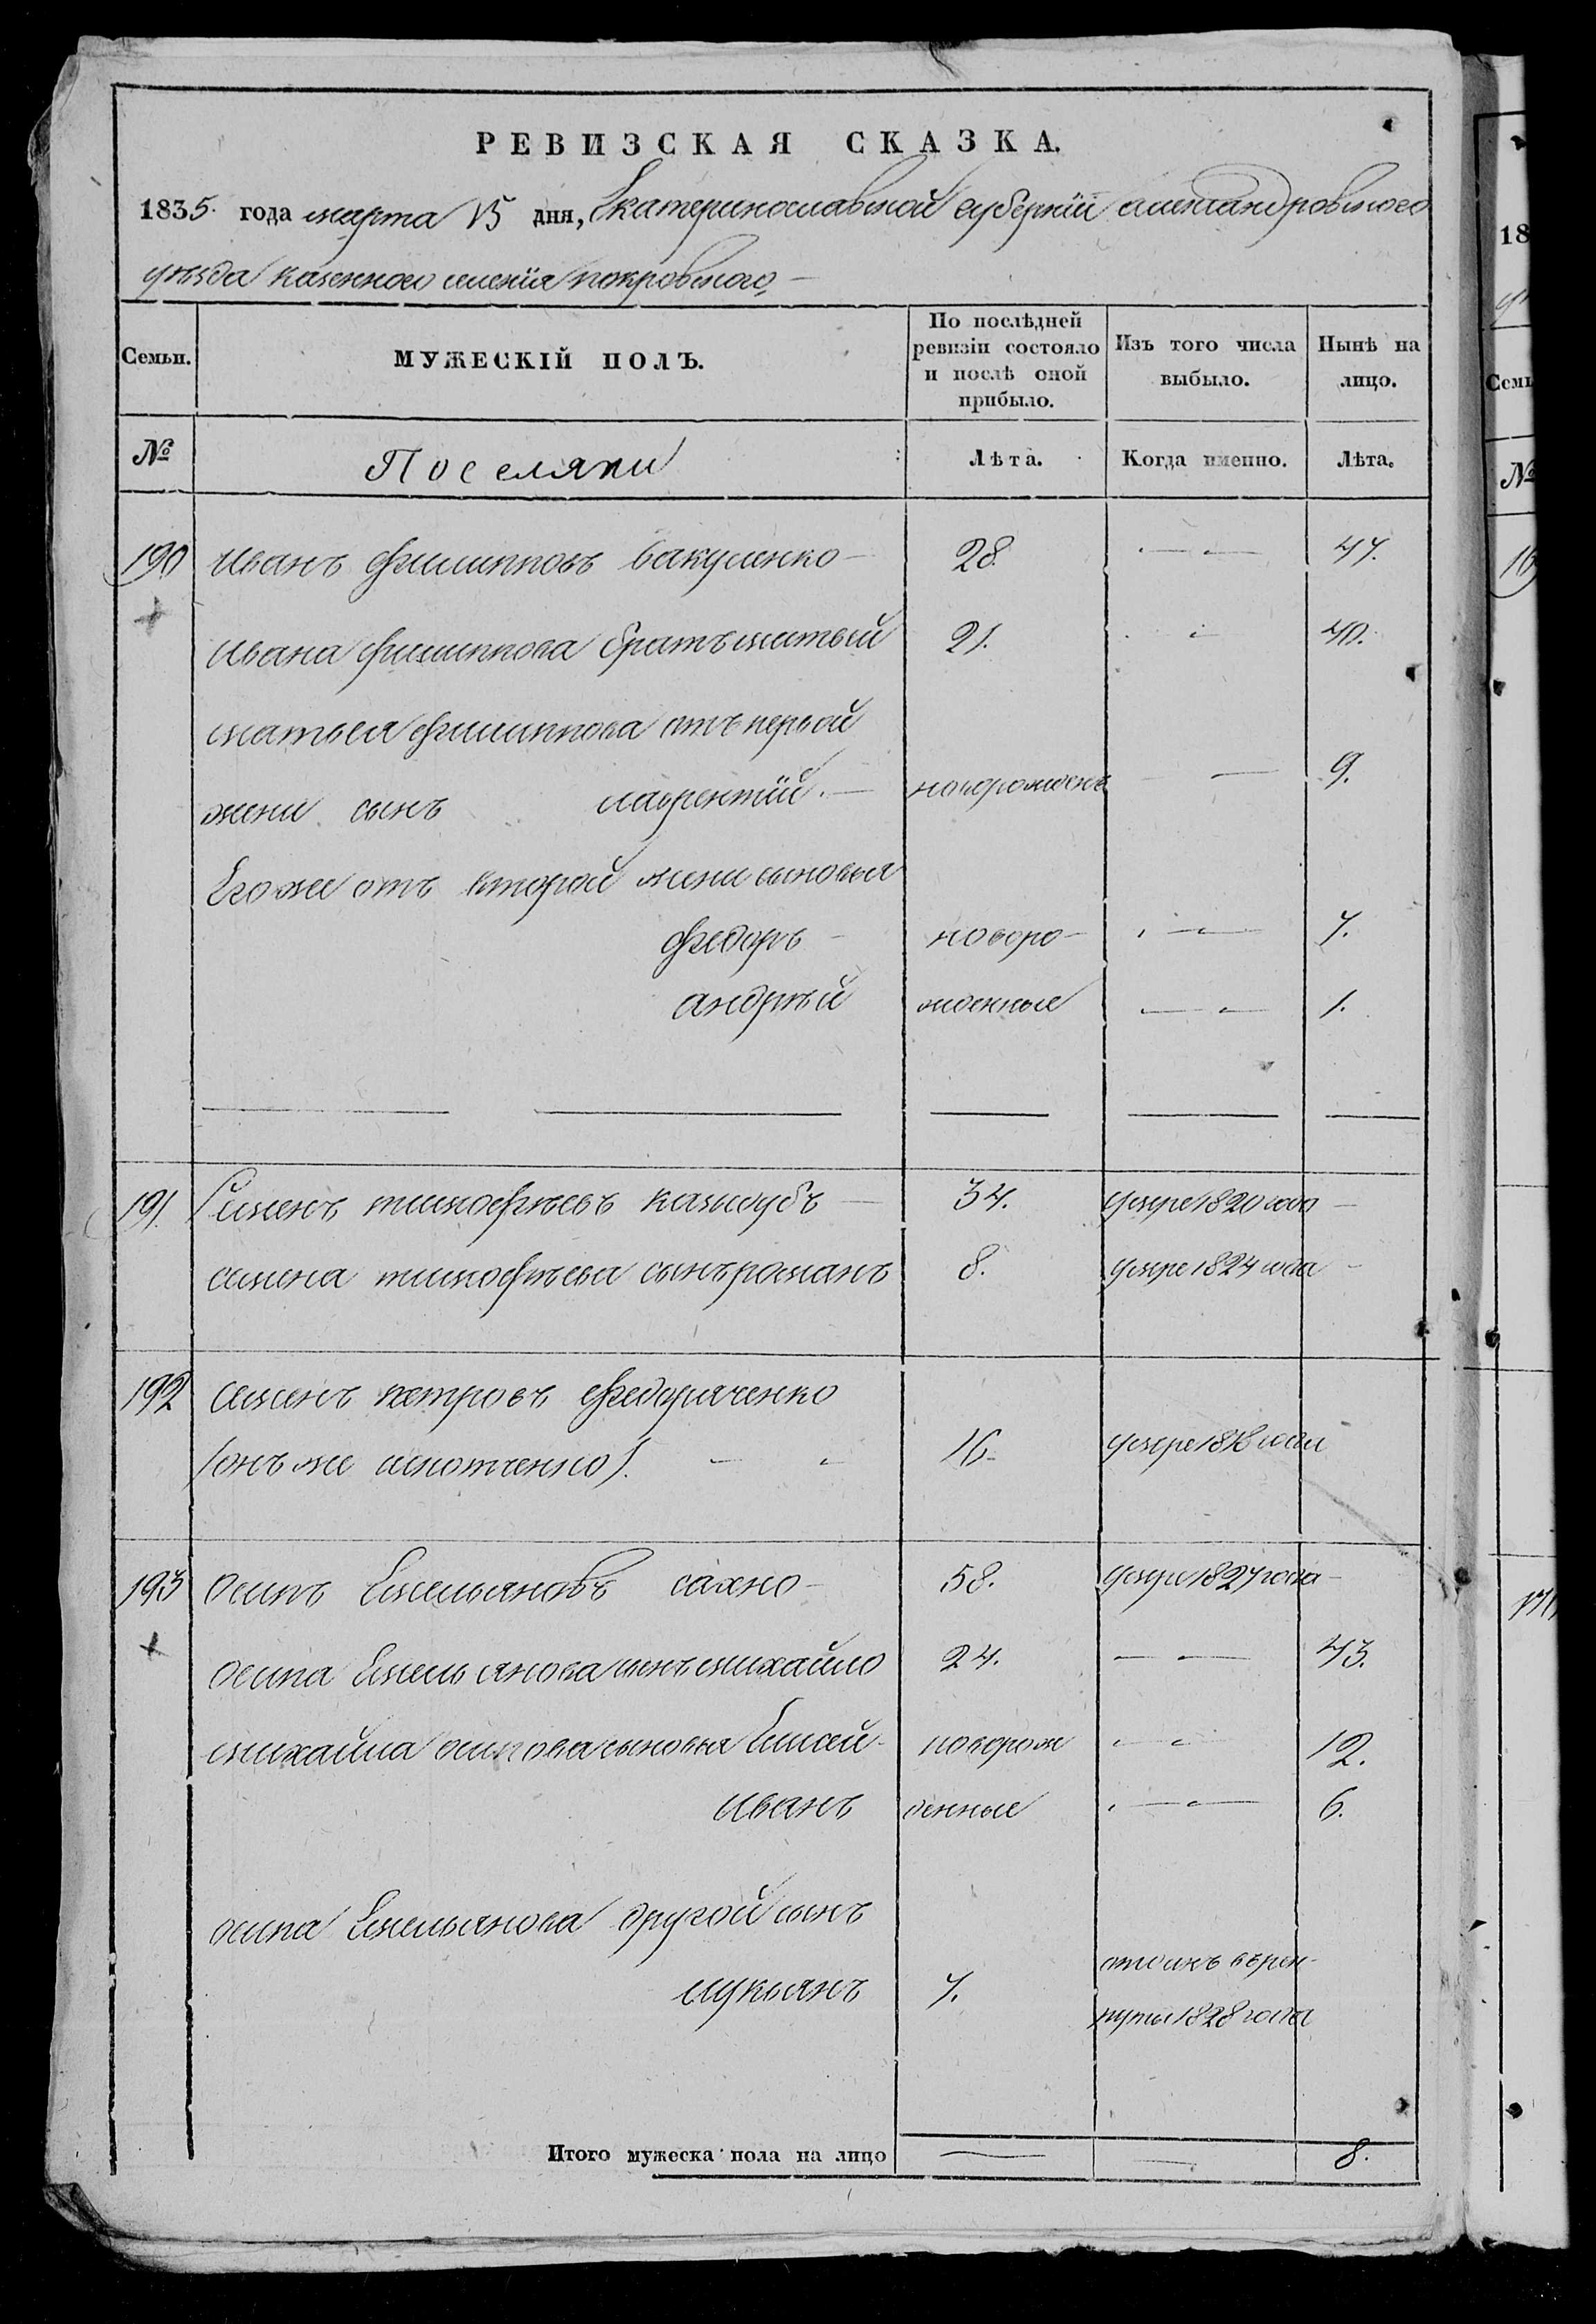 РЕВИЗСКАЯ СКАЗКА.
1835. года марта 15 дня, Екатеринославской губерніи александровского
уезда казенного имения покровского,
Семьи. МУЖЕСКІЙ ПОЛЪ. По послѣдней ревизіи состояло и послѣ оной прибыло. Изъ того числа выбыло. Нынѣ на лицо.
№ Поселяни Лѣта. Когда именно. Лѣта.
190 Иванъ филипповъ вакуленко — 28. 47.
Ивана филиппова братъ матвей 21. 40.
матвея филиппова отъ первой
жени сынъ лаврентій. — новорожденъ 9.
Его же отъ второй жени сыновья
федоръ — новоро— 7.
андрѣй жденные 1.
191. Семенъ тимофѣевъ 34. умре 1820 года —
семена тимофѣева сынъ романъ 8. умре 1824 года —
192 семенъ петровъ федоряченко
(онъ же ). 16. умре года
193 осипъ Емельяновъ сахно — 58. умре 1827 года —
осипа Емельянова сынъ михайло 24. 43.
михайла осипова сыновья Елисей — поворож 12.
Иванъ денные 6.
осипа Емельянова другой сынъ
лукьянъ 7. отданъ врек—
руты 1828 года
Итого мужеска пола на лицо 8.
18
Семь
№